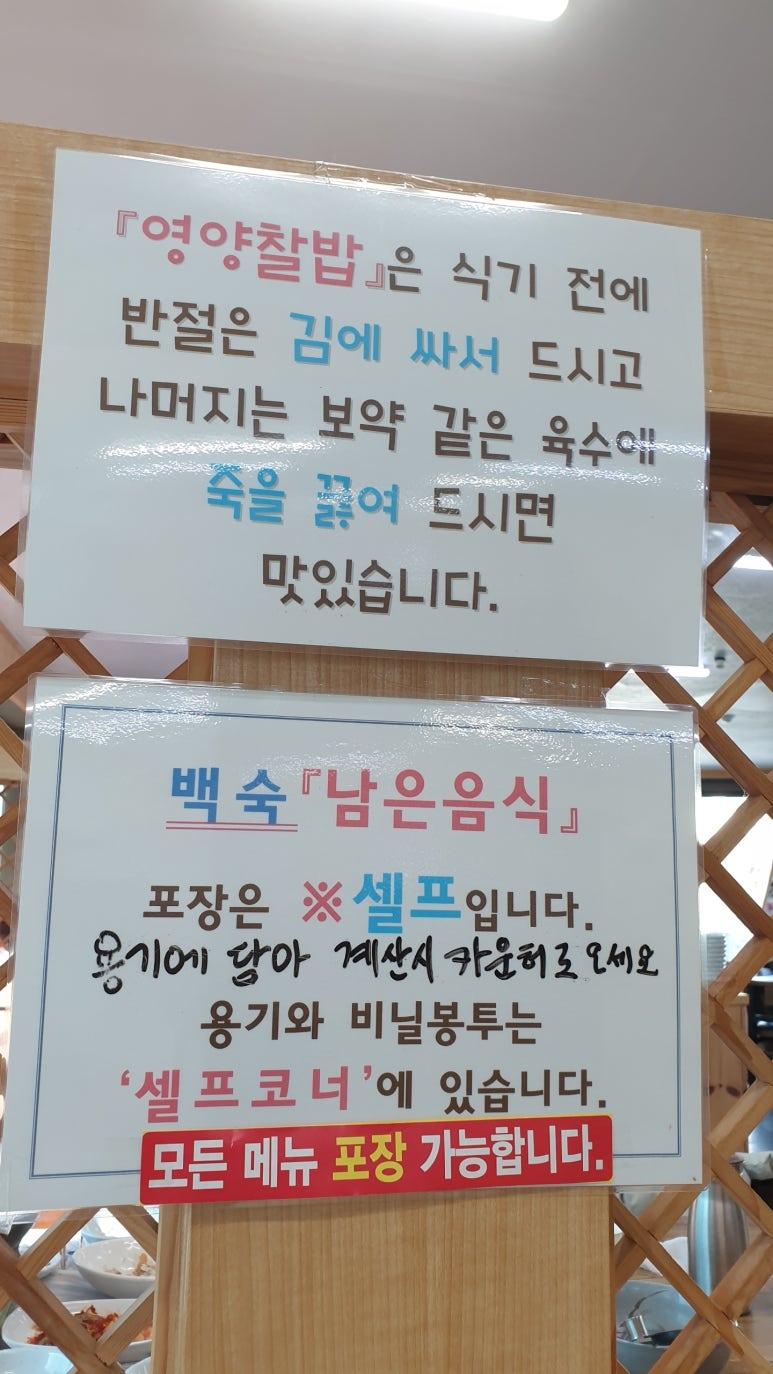 『영양찰밥』은 식기 전에
반절은 김에 싸서 드시고
나머지는 보약 같은 육수에
죽을 끓여 드시면
맛있습니다.
백숙『남은음식』
포장은 ※셀프입니다.
용기에 담아 계산시 카운터로 오세요
용기와 비닐봉투는
‘셀프코너’에 있습니다.
모든 메뉴 포장 가능합니다.